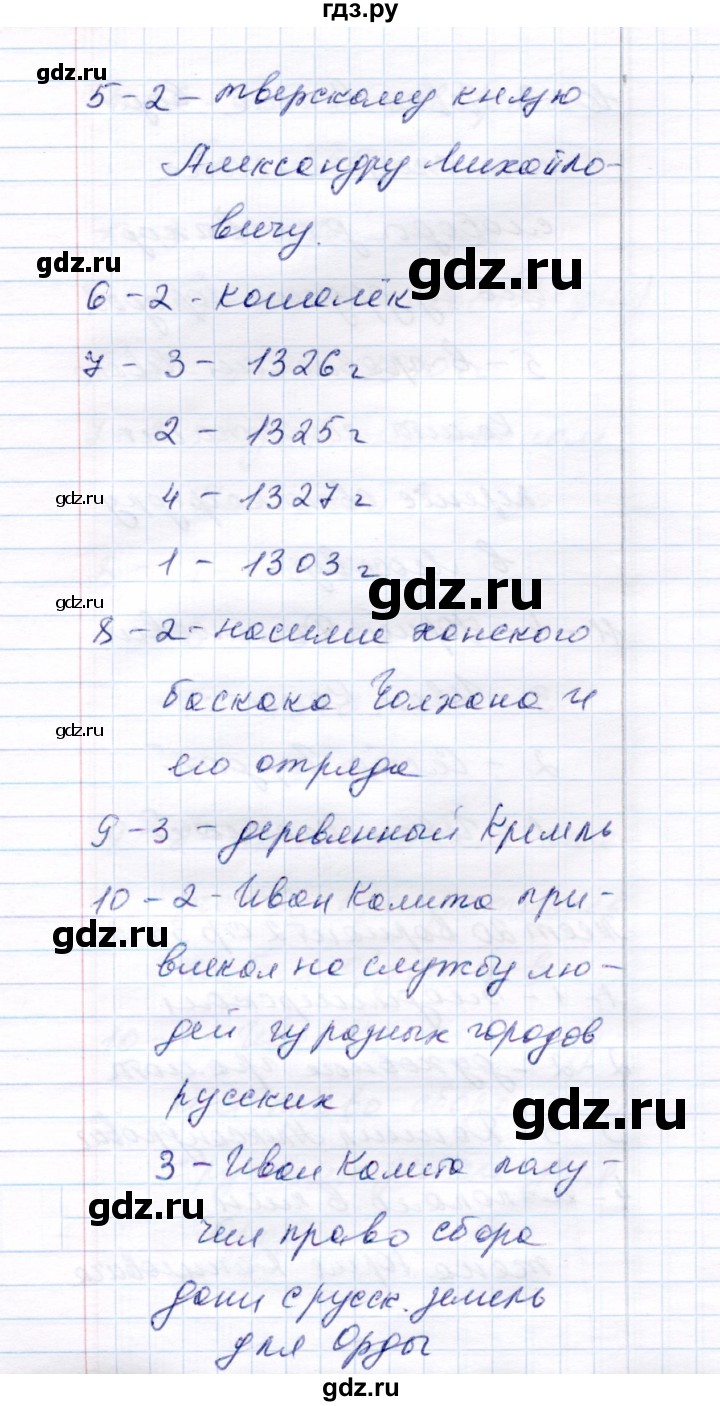 гдз.ру
gdz.ru
5 - 2 - тверскому князю
Александру Михайло-
вичу.
gdz.ru
gdz.ru
6 - 2 - кошелёк
7 - 3 - 1326 г
2 - 1325 г
gdz.ru
4 - 1327 г
1 - 1303 г
gdz.ru
gdz.ru
8 - 2 - насилие ханского
баскака Чолхана и
gdz.ru
его отряда
9 - 3 - деревянный Кремль
10 - 2 - Иван Калита при-
gdz.ru
влекал на службу лю-
дей из разных городов
русских
gdz.ru
3 - Иван Калита полу-
gdz.ru
чил право сбора
дани с русск. земель
для Орды
gdz.ru